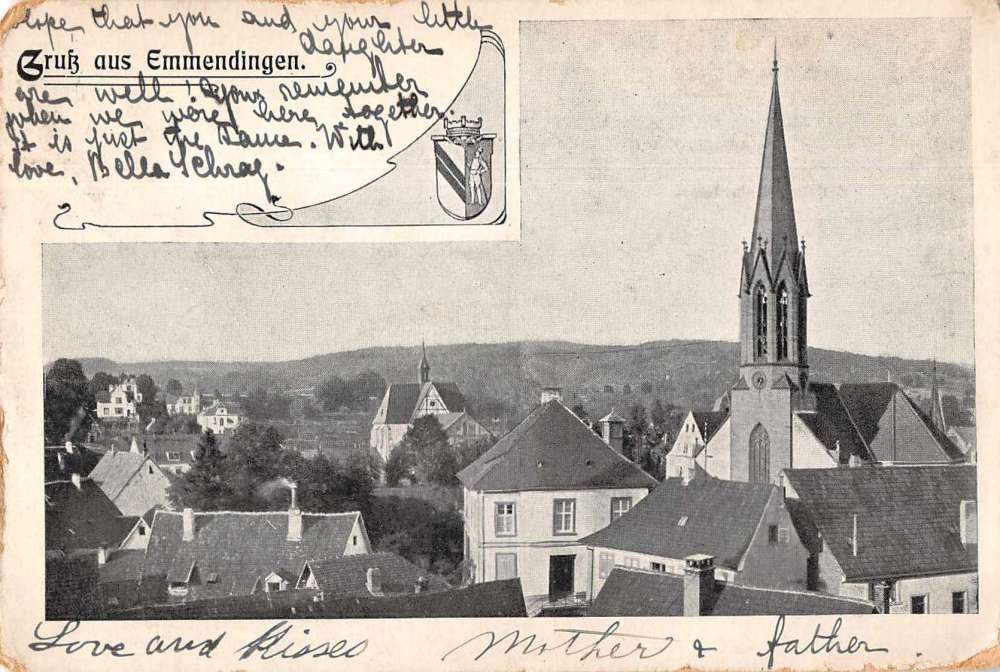 Hope that you and your little
daughter
Gruß aus Emmendingen.
are well! You remember
when we were here together.
It is just the same. With
love, Bella Schrag.
Love and Kisses Mother & father.